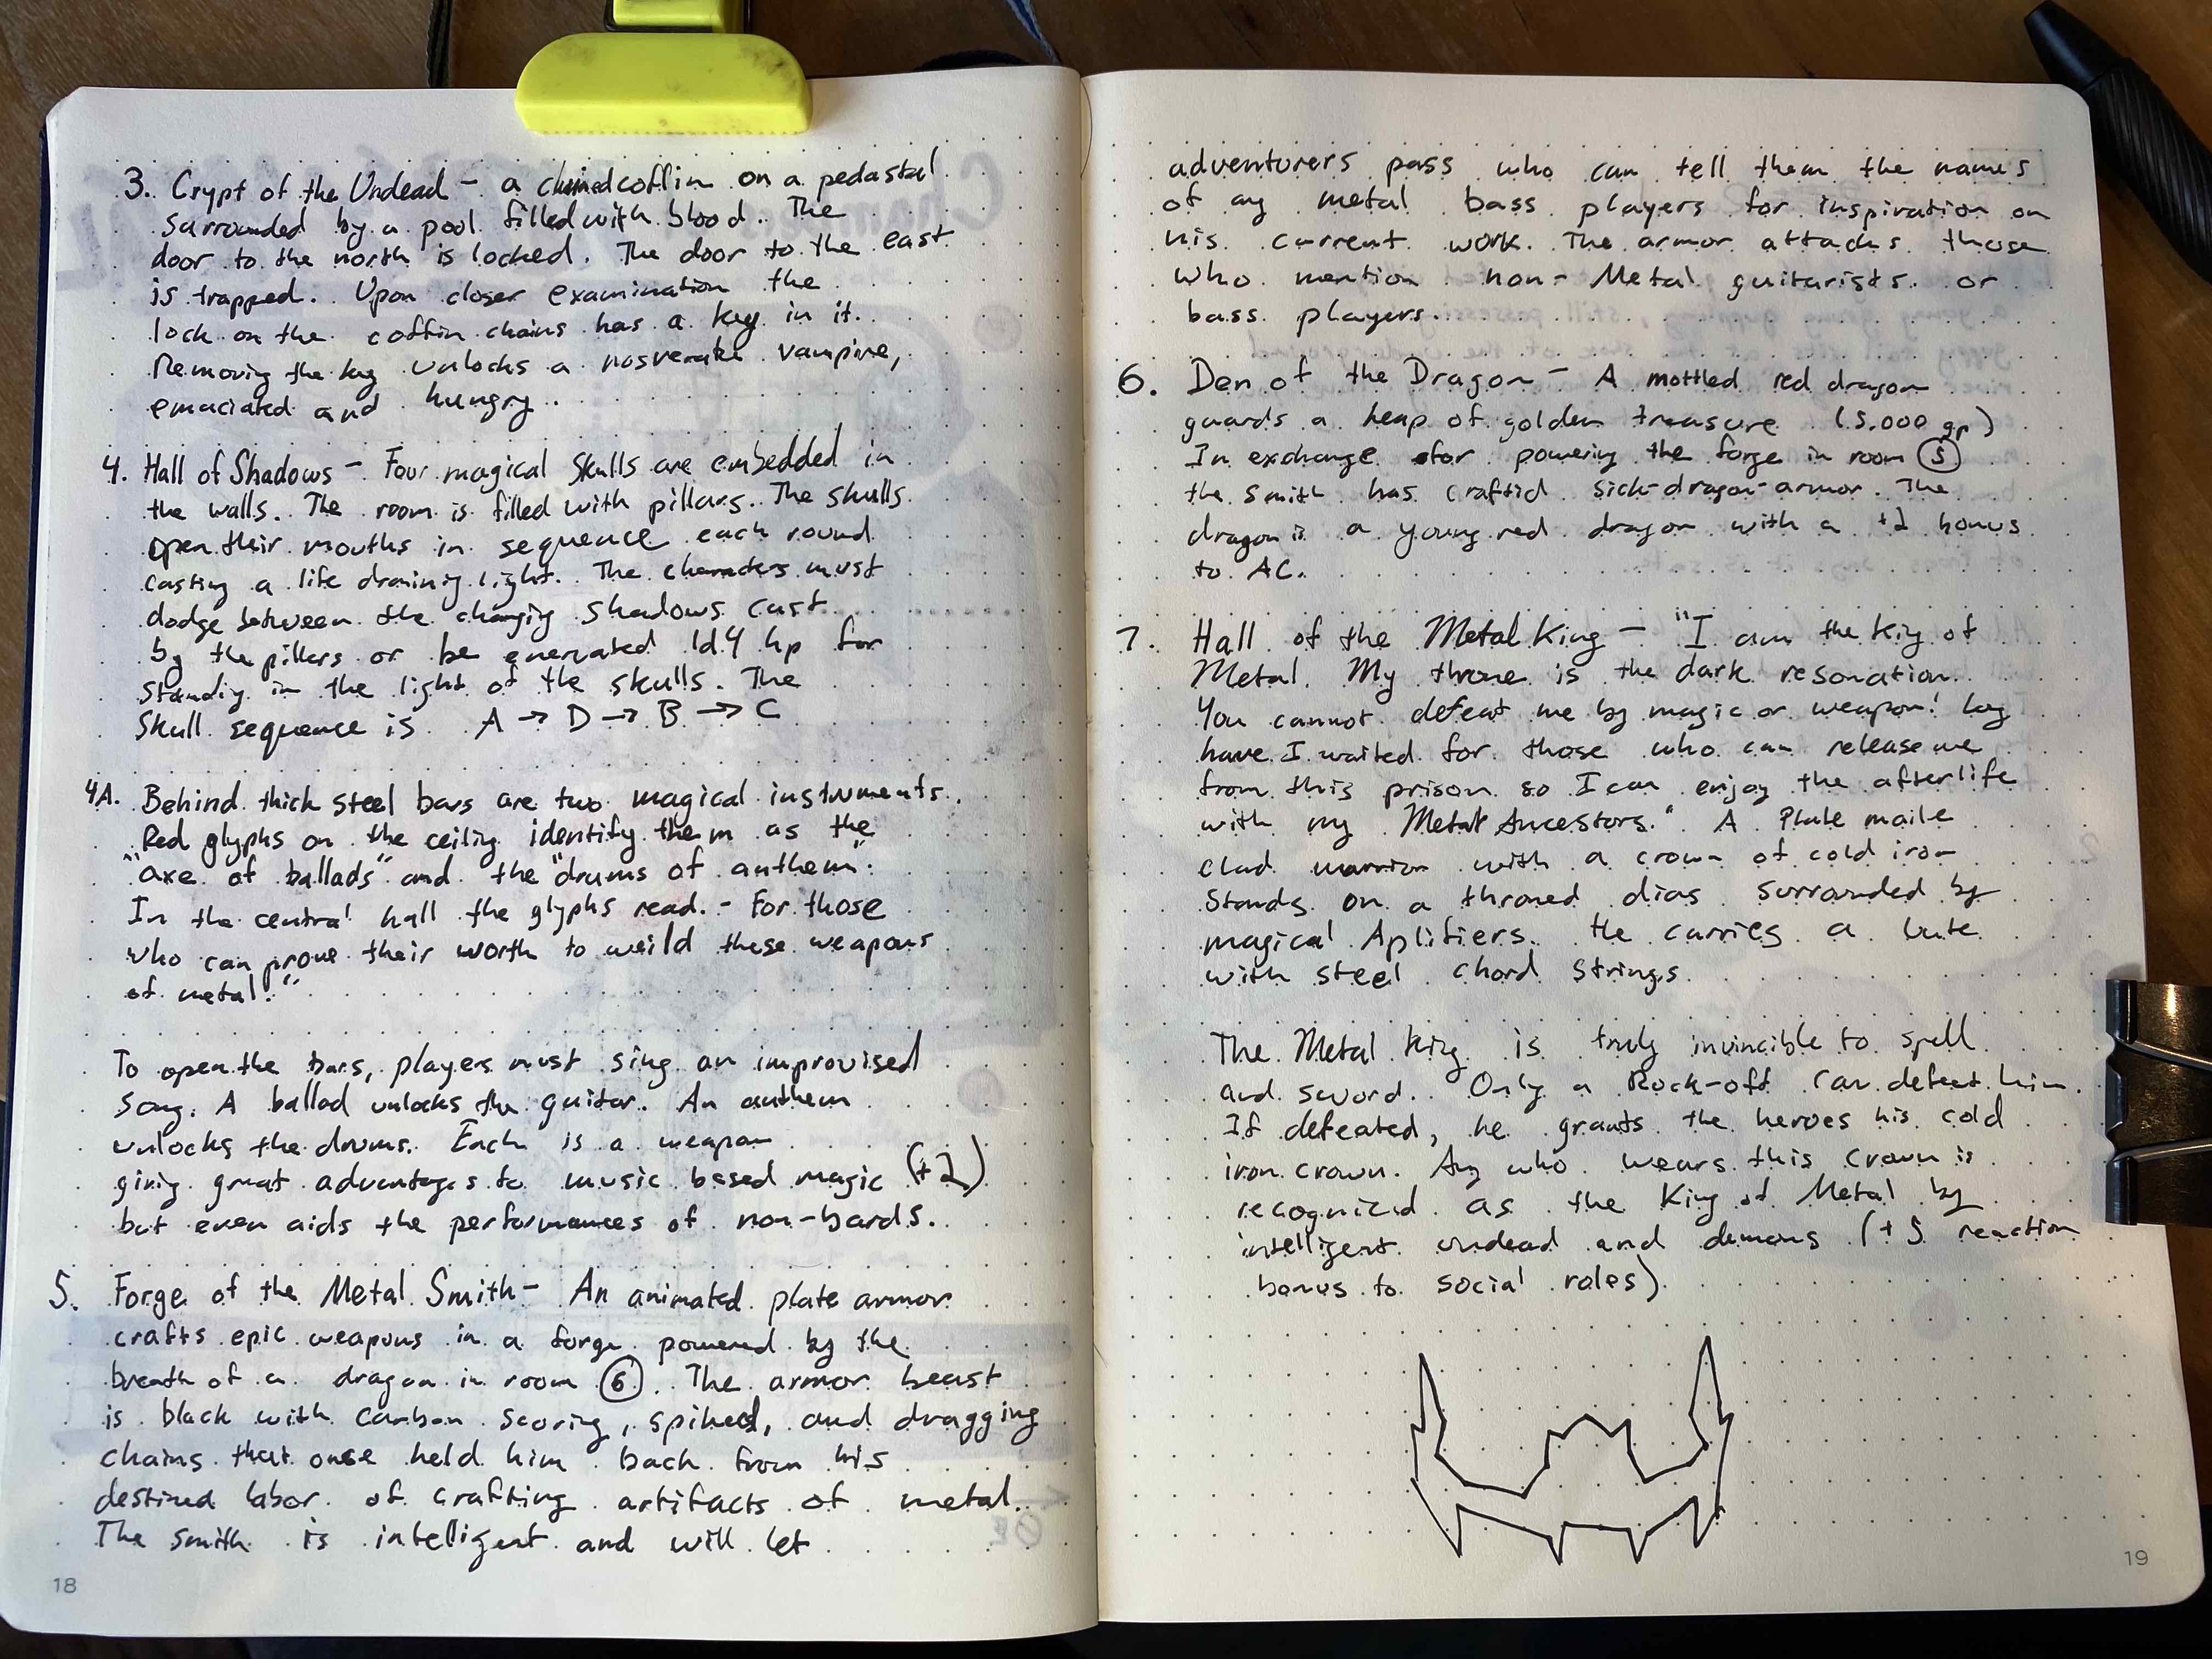 3. Crypt of the Undead - a chained coffin on a pedastal
surrounded by a pool filled with blood. The
door to the north is locked. The door to the east
is trapped. Upon closer examination the
lock on the coffin chains has a key in it.
Removing the key unlocks a nosveratu vampire,
emaciated and hungry.
4. Hall of Shadows - Four magical skulls are embedded in
the walls. The room is filled with pillars. The skulls
open their mouths in sequence each round
casting a life draining light. The characters must
dodge between the changing shadows cast
by the pillers or be enervated 1d4 hp for
standing in the light of the skulls. The
skull sequence is A → D → B → C
4A. Behind thick steel bars are two magical instruments.
Red glyphs on the ceiling identify them as the
"axe of ballads" and the "drums of anthem".
In the central hall the glyphs read. - For those
who can prove their worth to weild these weapons
of metal!"
To open the bars, players must sing an improvised
song. A ballad unlocks the guitar. An anthem
unlocks the drums. Each is a weapon
giving great advantages to music based magic (+2)
but even aids the performances of non-bards.
5. Forge of the Metal Smith - An animated plate armor
crafts epic weapons in a forge powered by the
breath of a dragon in room 6. The armor beast
is black with carbon scoring, spiked, and dragging
chains that once held him back from his
destined labor of crafting artifacts of metal.
The smith is intelligent and will let
18
adventurers pass who can tell them the names
of any metal bass players for inspiration on
his current work. The armor attacks those
who mention non-Metal guitarists or
bass players.
6. Den of the Dragon - A mottled red dragon
guards a heap of golden treasure (5,000 gp)
In exchange for powering the forge in room 5
the smith has craftid sick-dragon-armor. The
dragon is a young red dragon with a +2 bonus
to AC.
7. Hall of the Metal King - "I am the King of
Metal. My throne is the dark resonation.
You cannot defeat me by magic or weapon! Long
have I waited for those who can release me
from this prison so I can enjoy the afterlife
with my Metal Ancestors." A Plate maile
clad warrior with a crown of cold iron
stands on a throned dias surrounded by
magical Aplifiers. He carries a lute
with steel chord strings.
The Metal King is truly invincible to spell
and sword. Only a Rock-off can defeat him.
If defeated, he grants the heroes his cold
iron crown. Any who wears this crown is
recognized as the King of Metal by
intelligent undead and demons (+5 reaction
bonus to social roles).
19